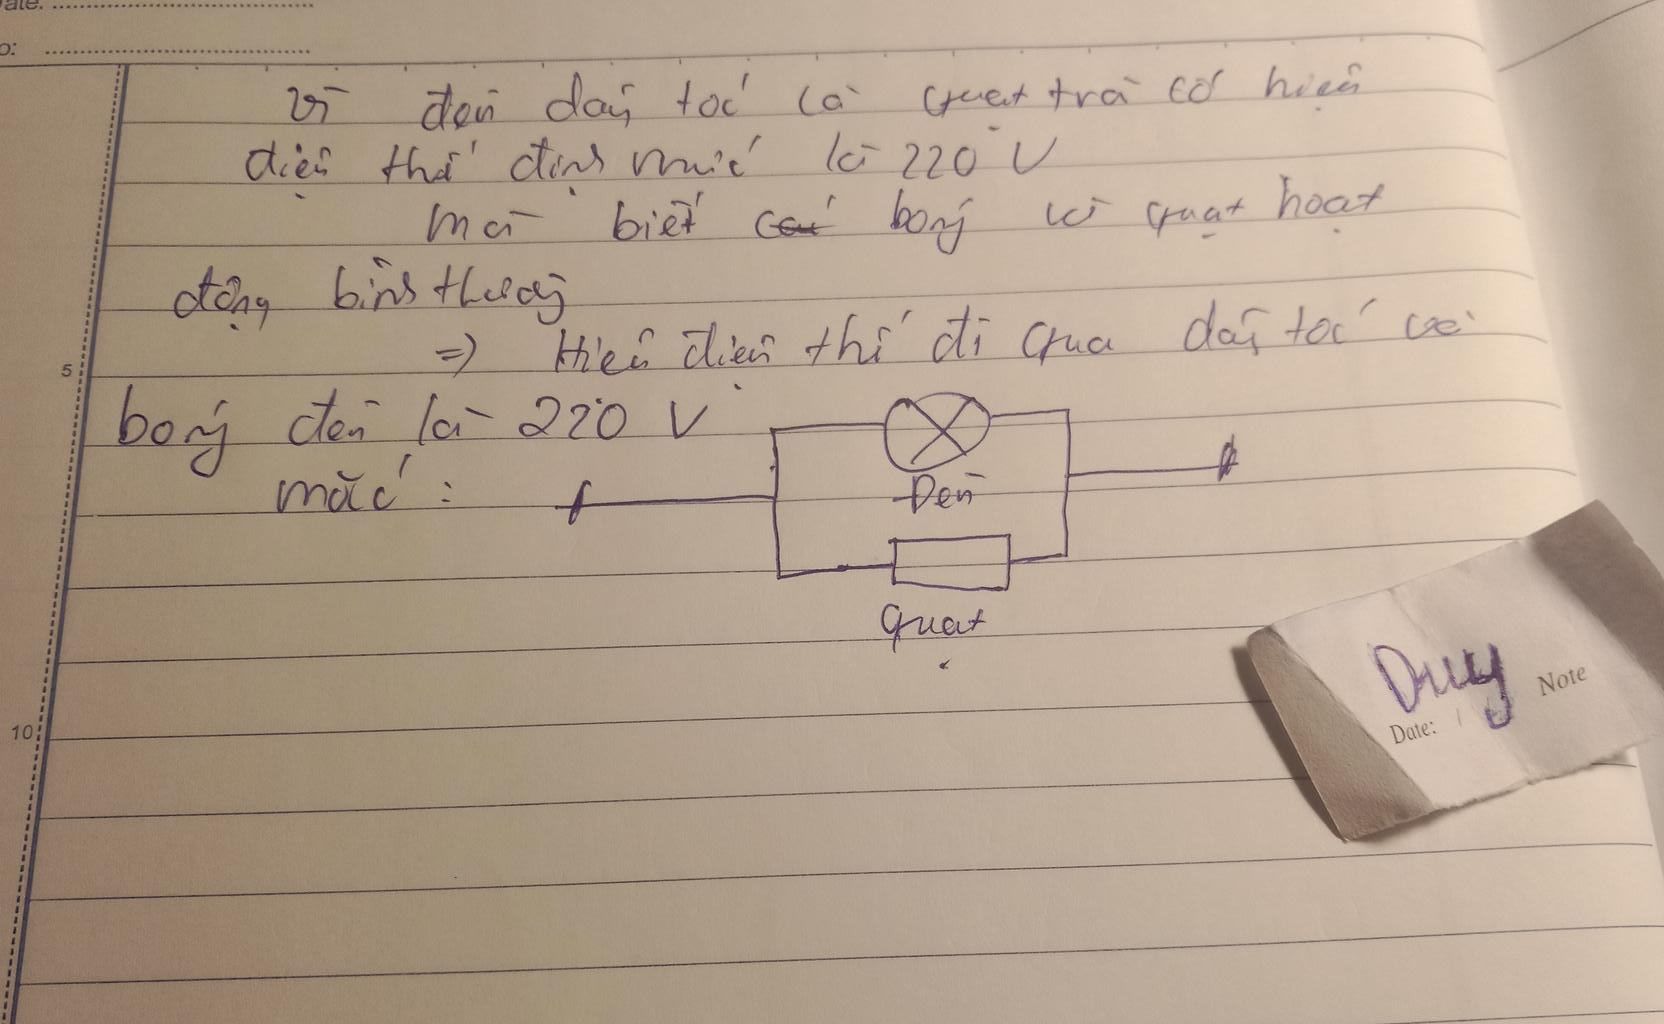 Date:
o:
Vì đèn dây tóc và quạt trần có hiệu
điện thế định mức là 220 V
mà biết bóng và quạt hoạt
động bình thường
=> Hiệu điện thế đi qua dây tóc và
5
bóng đèn là 220 V
mắc :
Đèn
Quạt
10
Duy
Note
Date: